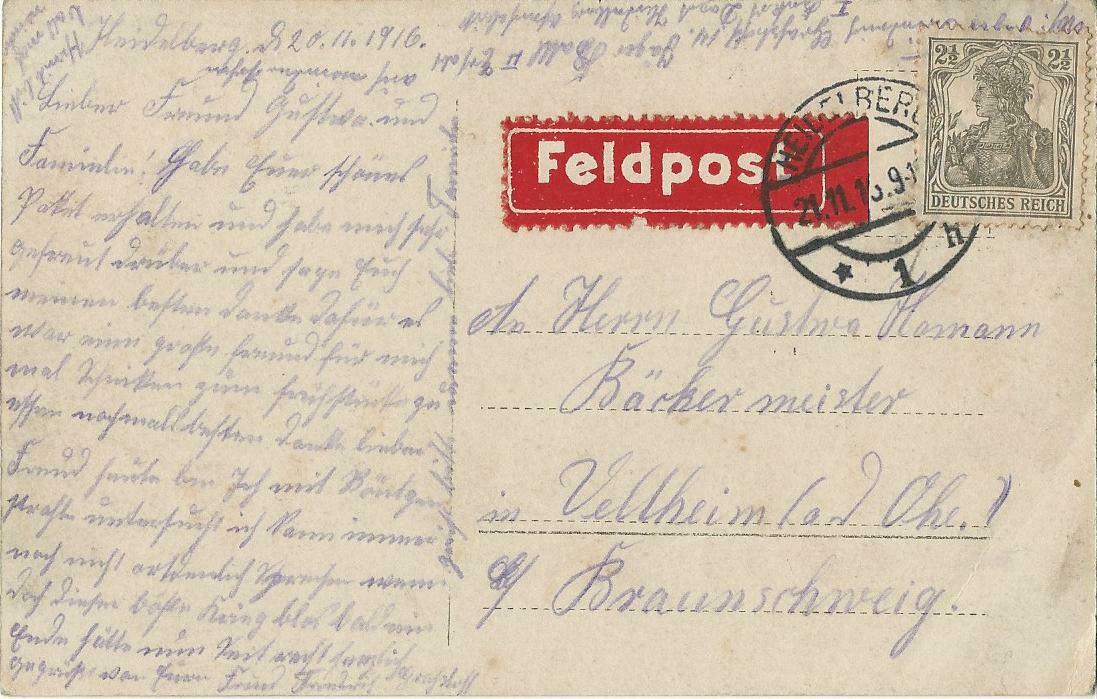 Heidelberg. d 20.11.1916.
Lieber Freund Gustva. und
Familie! Habe Euer schönes
Paket erhalten und habe mich sehr
gefreut drüber und sage Euch
meinen besten Danke dafür es
war eine große freund für mich
mal Schinken zum frühstücke zu
essen nochmals besten Danke lieber
Freund heute bin Ich mit Röntgen
strahle untersucht ich kann immer
noch nicht ordendlich Sprechen wenn
doch dieser böse Krieg blos bald ein
Ende hätte nun Seit recht herzlich
gegrüßt von Eurn Freund Friedrich
Feldpost
HEIDELBERG
21.11.16.9-1
* 1 h
2½ 2½
DEUTSCHES REICH
An Herrn Gustva Hamann
Bäckermeister
in Vellheim (a d Ohe.)
b/ Braunschweig.